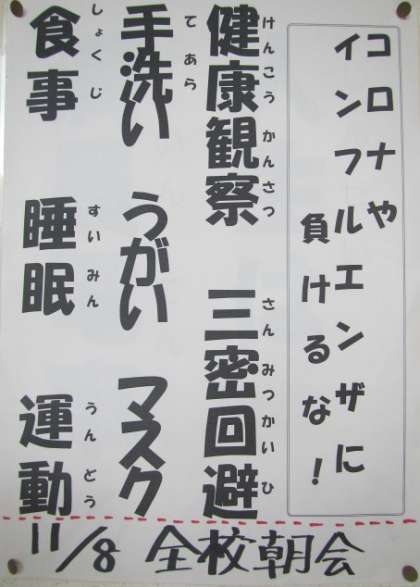 コロナや
インフルエンザに
負けるな！
けんこう かんさつ
健康観察
さんみつかいひ
三密回避
てあら
手洗い うがい マスク
しょくじ
食事
すいみん
睡眠
うんどう
運動
11/8 全校朝会